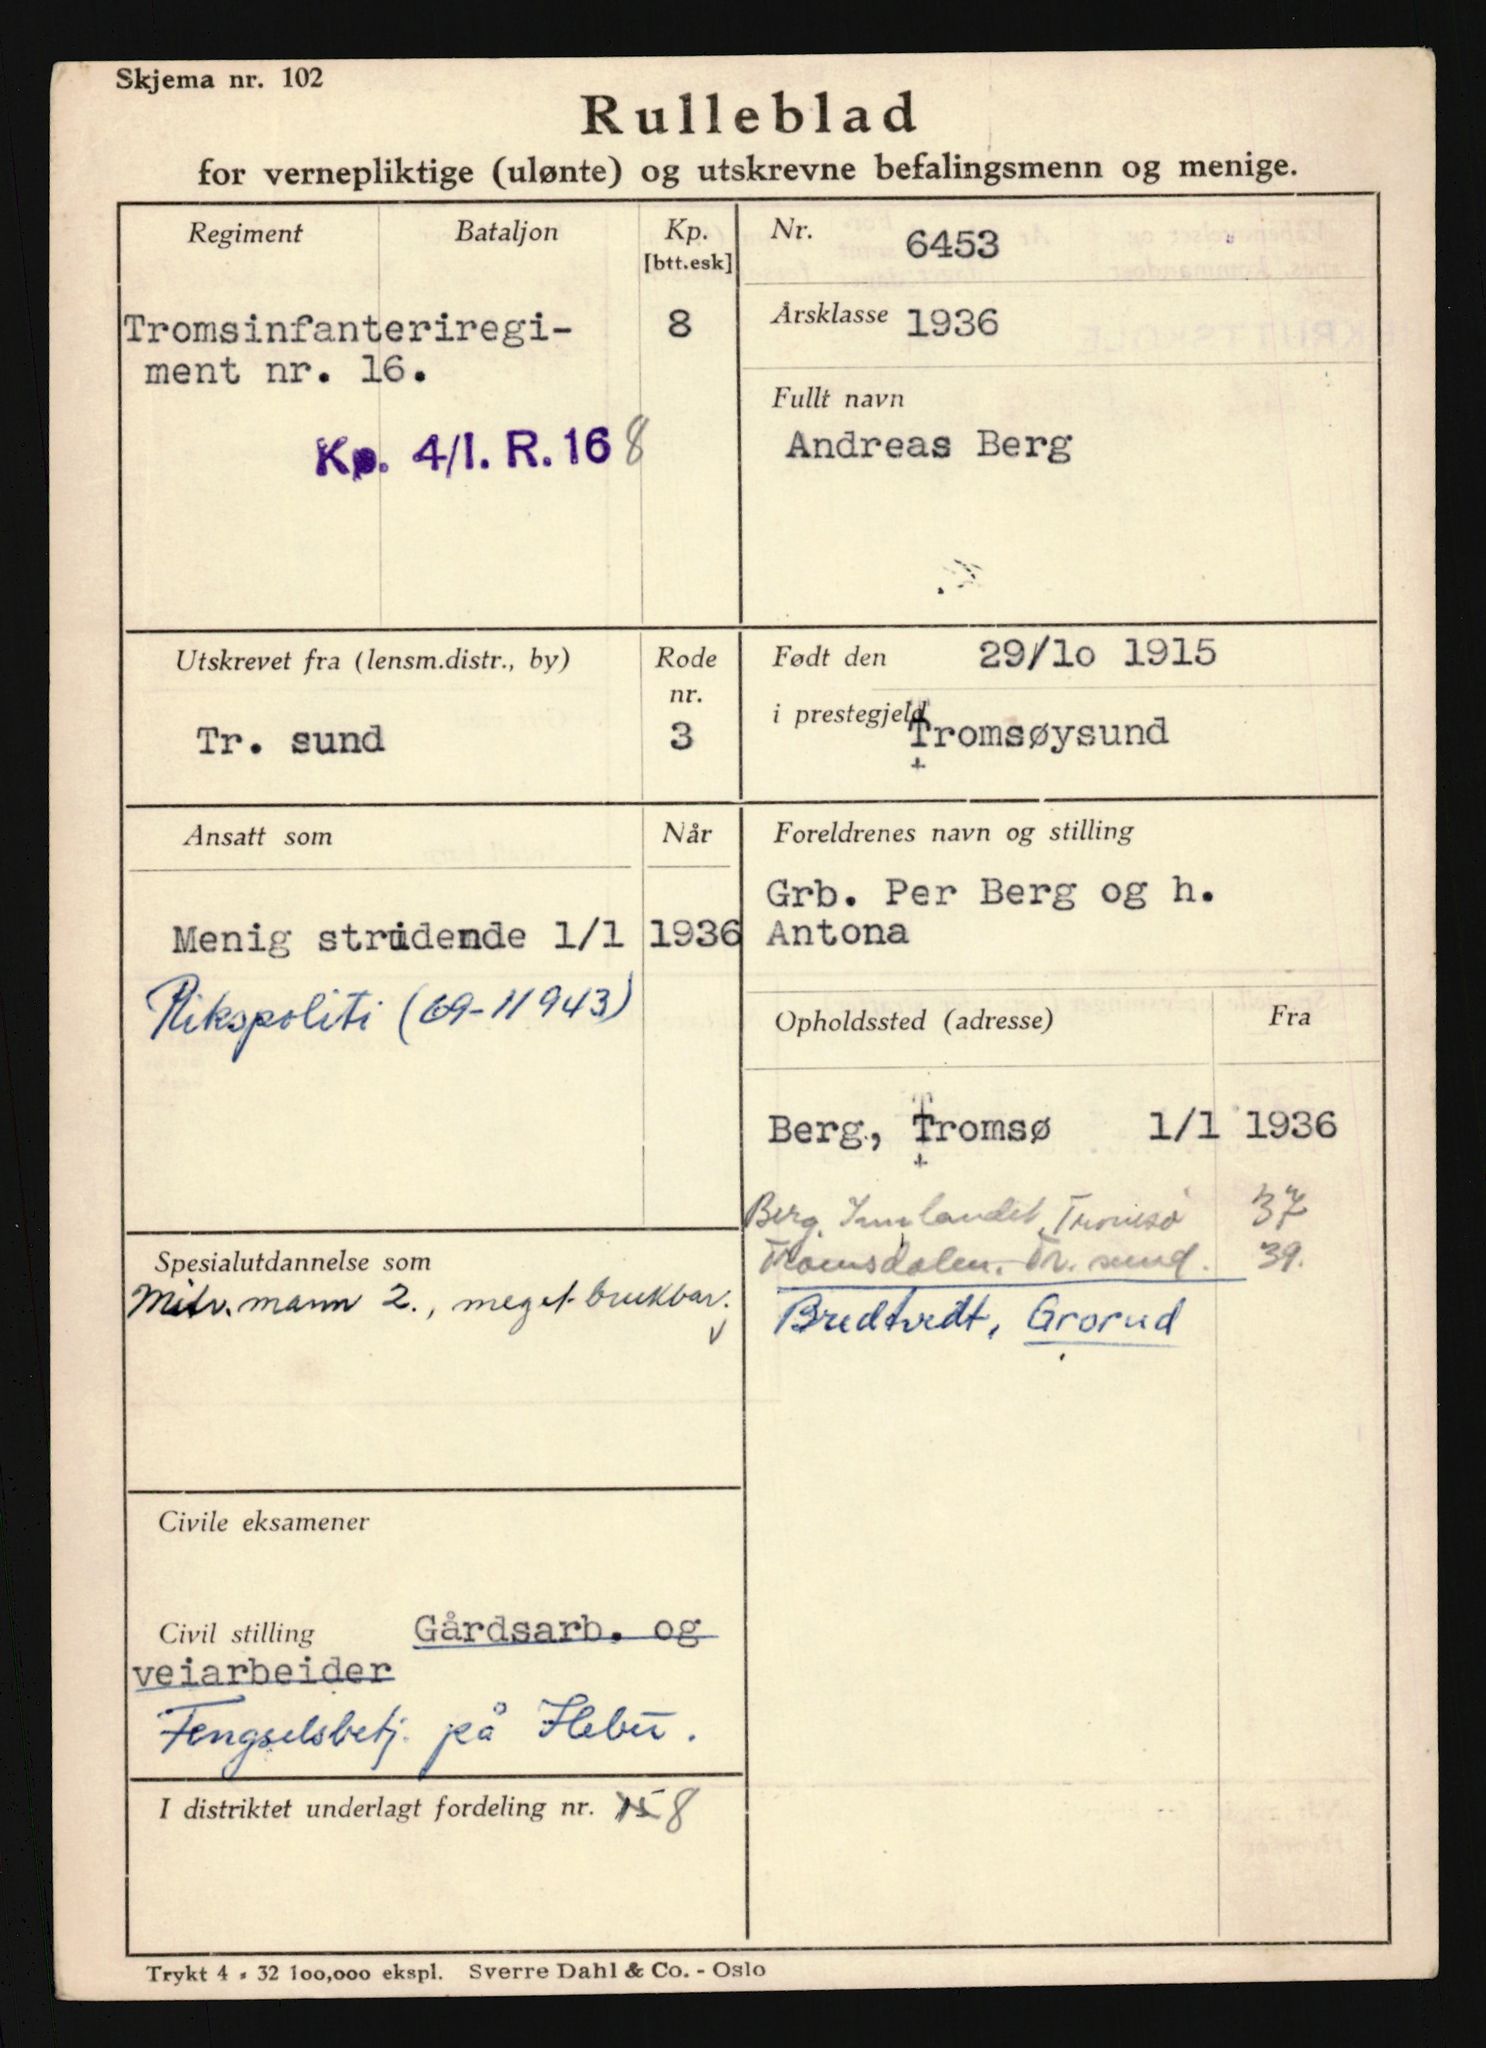 Skjema nr. 102
Rulleblad
for vernepliktige (ulønte) og utskrevne befalingsmenn og menige.
Regiment
Bataljon
Kp.
[btt.esk]
Tromsinfanteriregi-
ment nr. 16.
8
Kp. 4/I. R. 16 8
Nr. 6453
Årsklasse 1936
Fullt navn
Andreas Berg
Utskrevet fra (lensm.distr., by)
Rode
nr.
Tr. sund
3
Født den 29/1o 1915
i prestegjeld Tromsøysund
Ansatt som
Når
Menig stridende 1/1 1936
Rikspoliti (69-11943)
Foreldrenes navn og stilling
Grb. Per Berg og h.
Antona
Opholdssted (adresse)
Fra
Berg, Tromsø 1/1 1936
Berg, Innlandet, Tromsø 37
Tromsdalen. Tr. sund. 39.
Bredtvedt, Grorud
Spesialutdannelse som
Mitr. mann 2., meget brukbar.
Civile eksamener
Civil stilling Gårdsarb. og
veiarbeider
Fengselsbetj. på Ilebu.
I distriktet underlagt fordeling nr. 15 8
Trykt 4 - 32 100,000 ekspl. Sverre Dahl & Co. - Oslo